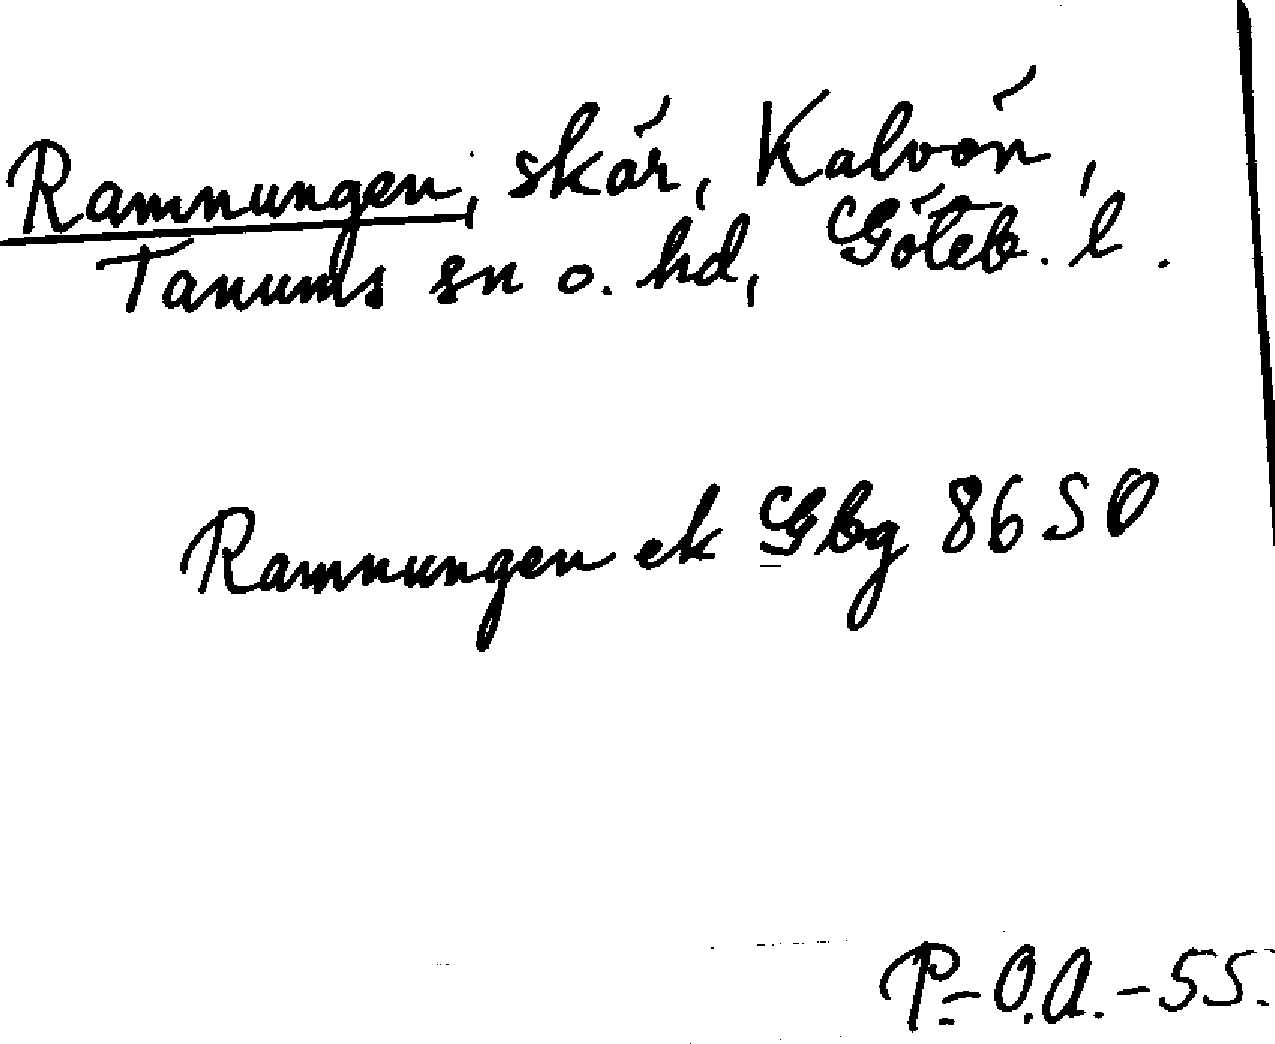 Ramnungen, skär, Kalvön,
Tanums sn o. hd, Göteb. l.
Ramnungen ek Gbg 86 SO
P-O.A.-55.